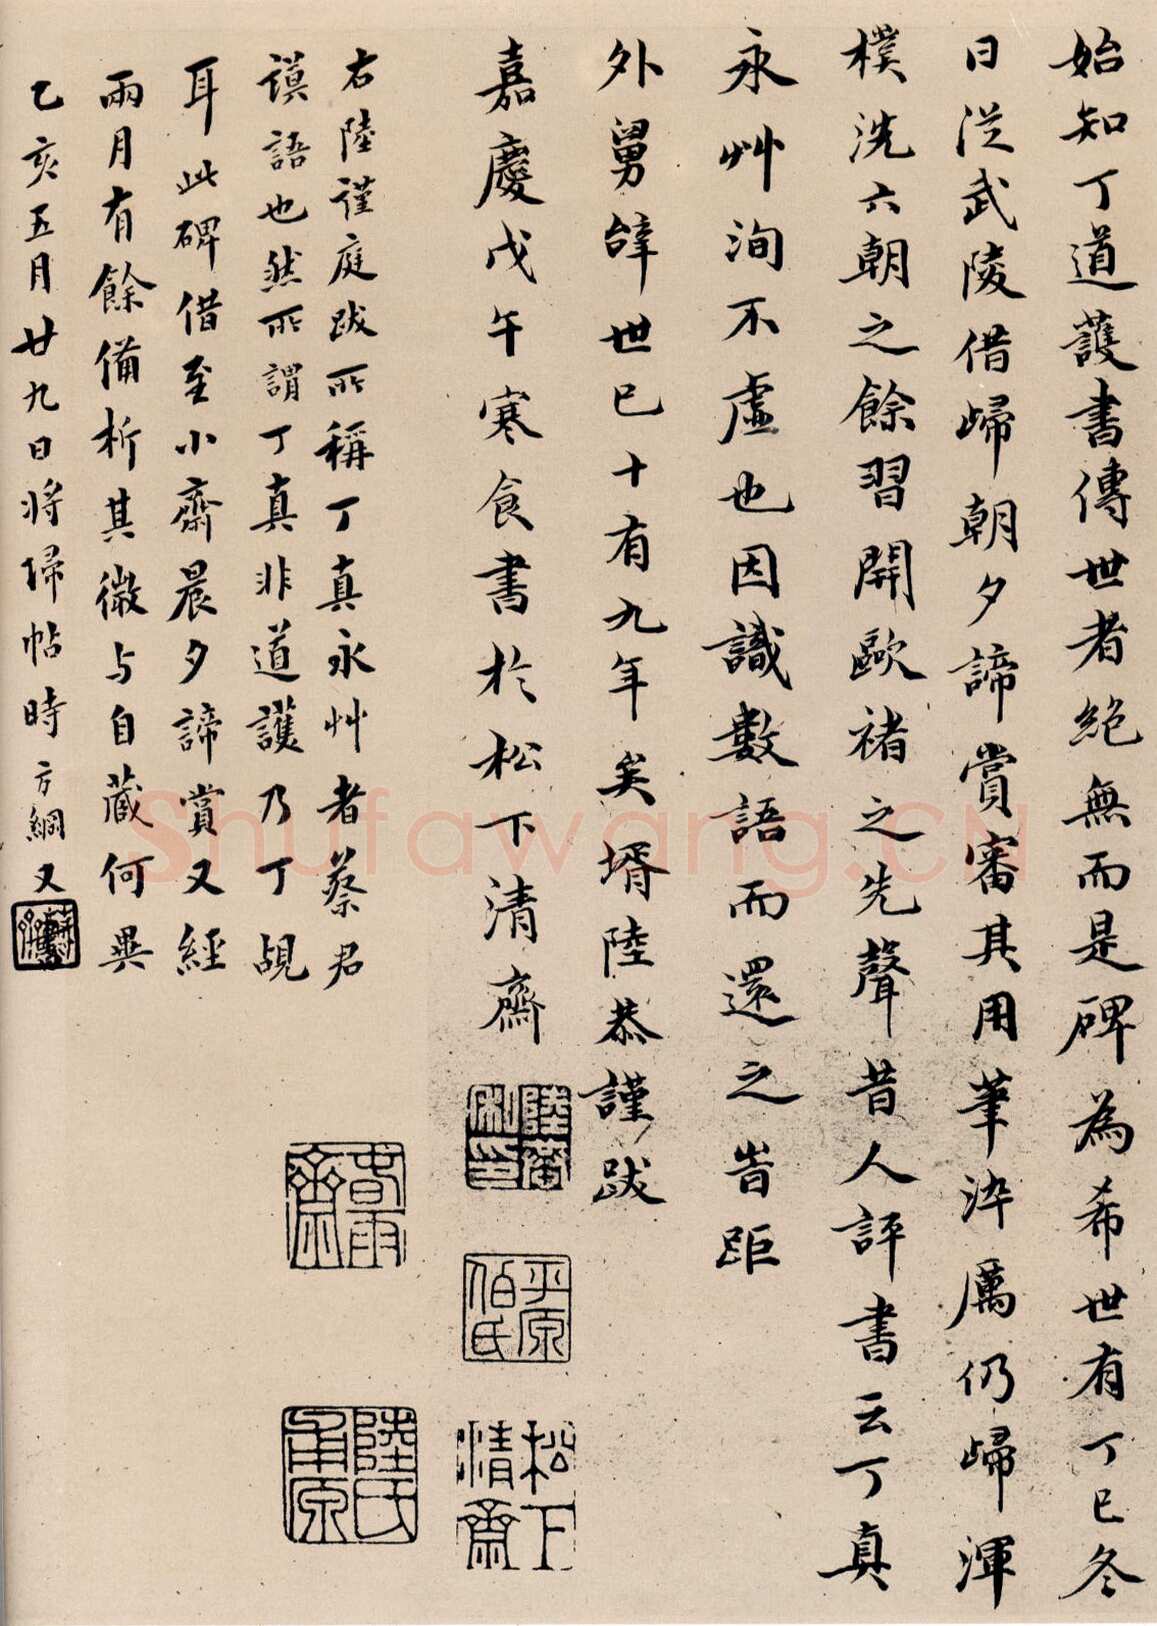 始知丁道護書傳世者絕無而是碑為希世有丁巳冬
日從武陵借歸朝夕諦賞審其用筆淬厲仍歸渾
樸洗六朝之餘習開歐褚之先聲昔人評書云丁真
永艸洵不虛也因識數語而還之旹距
外舅辭世已十有九年矣壻陸恭謹跋
嘉慶戊午寒食書於松下清齋
陸恭私印
平原伯氏
松下清齋
右陸謹庭跋所稱丁真永艸者蔡君
謨語也然所謂丁真非道護乃丁覘
耳此碑借至小齋晨夕諦賞又經
兩月有餘備析其微与自藏何異
乙亥五月廿九日將歸帖時方綱又
春雨齋
陸氏
Shufawang.cn